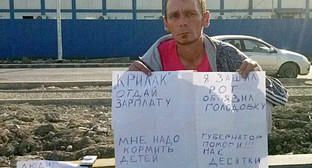 "КРИЛАК"
ОТДАЙ
ЗАРПЛАТУ
МНЕ НАДО
КОРМИТЬ
ДЕТЕЙ
Я ЗАШИЛ
РОТ
ОБЪЯВИЛ
ГОЛОДОВКУ
ГУБЕРНАТОР
ПОМОГИ!!!
НАС
ДЕСЯТКИ
ЛЮДИ